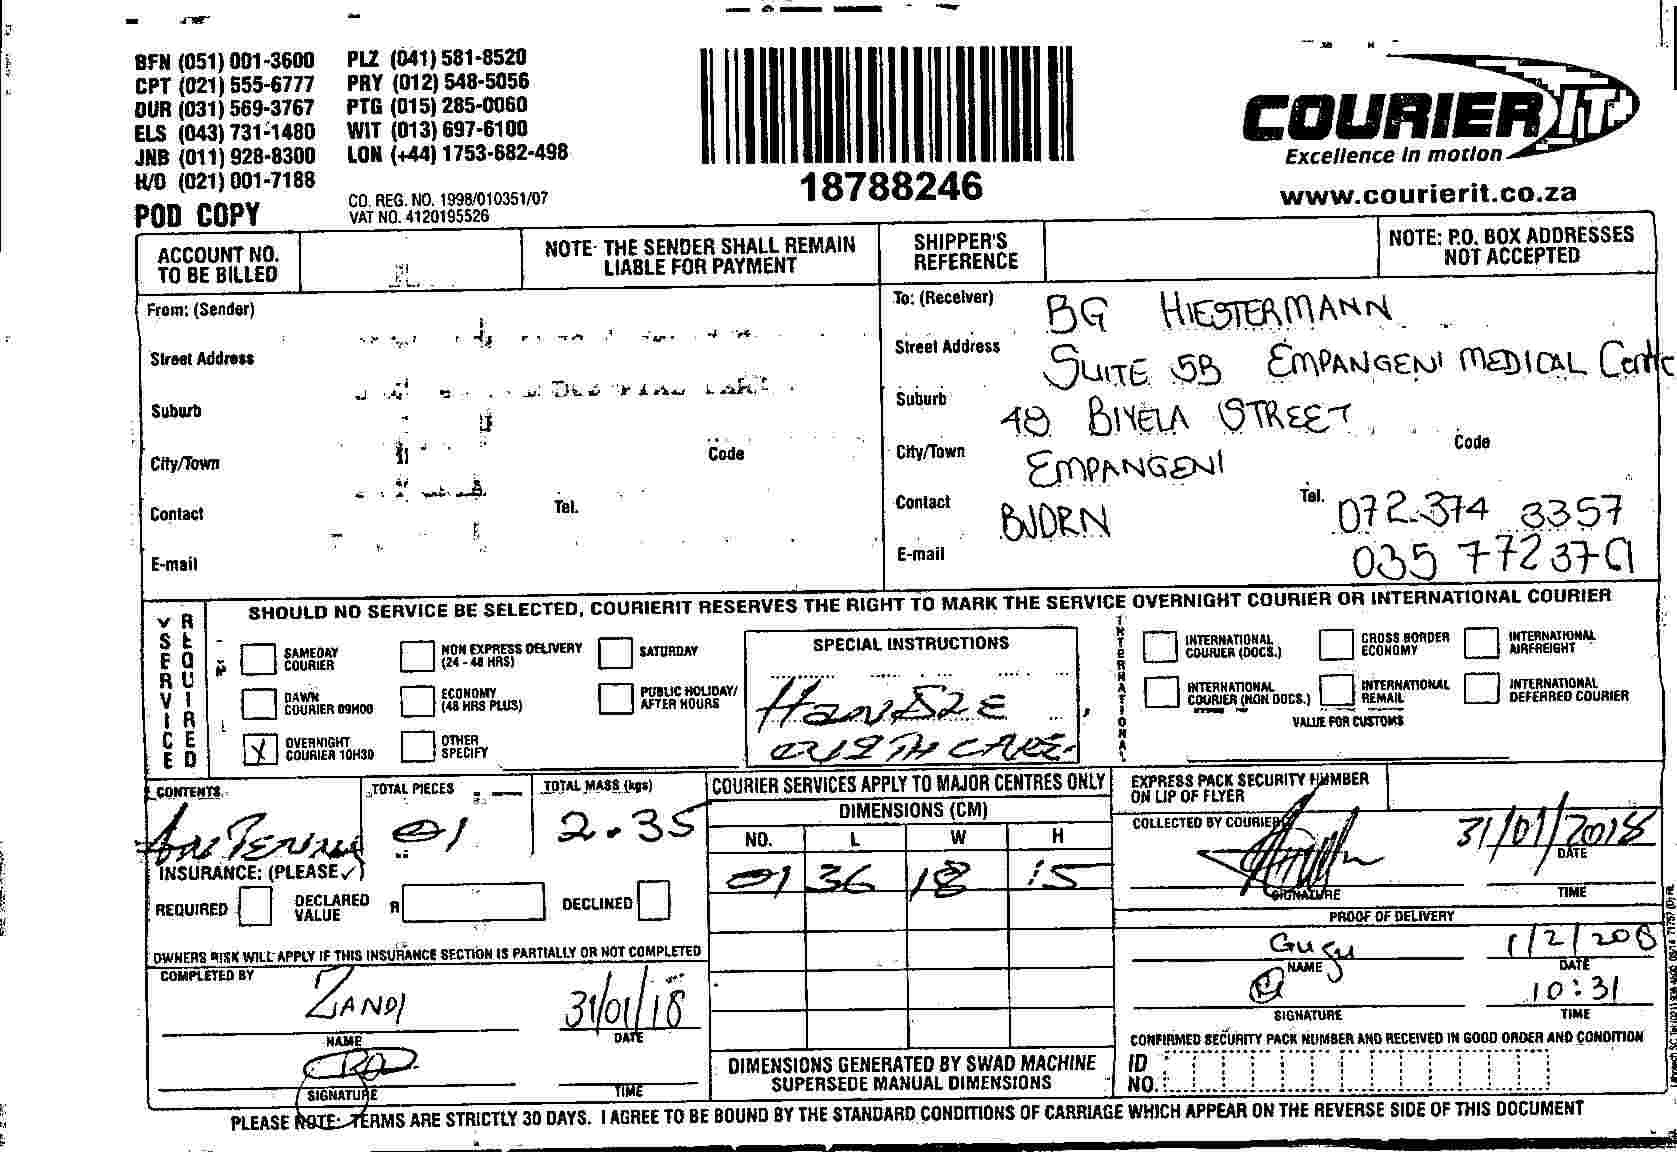 BFN (051) 001-3600 PLZ (041) 581-8520
CPT (021) 555-6777 PRY (012) 548-5056
DUR (031) 569-3767 PTG (015) 285-0060
ELS (043) 731-1480 WIT (013) 697-6100
JNB (011) 928-8300 LON (+44) 1753-682-498
H/O (021) 001-7188
POD COPY
CO. REG. NO. 1998/010351/07
VAT NO. 4120195526
18788246
COURIER IT
Excellence in motion
www.courierit.co.za
ACCOUNT NO.
TO BE BILLED
NOTE: THE SENDER SHALL REMAIN
LIABLE FOR PAYMENT
SHIPPER'S
REFERENCE
NOTE: P.O. BOX ADDRESSES
NOT ACCEPTED
From: (Sender)
Street Address
Suburb
City/Town
Code
Contact
Tel.
E-mail
To: (Receiver) BG HIESTERMANN
Street Address SUITE 5B EMPANGENI MEDICAL
Suburb 48 BIYELA STREET
City/Town EMPANGENI Code
Contact BJORN Tel. 072 374 3357
E-mail 035 772
SHOULD NO SERVICE BE SELECTED, COURIERIT RESERVES THE RIGHT TO MARK THE SERVICE OVERNIGHT COURIER OR INTERNATIONAL COURIER
SERVICE REQUIRED
SAMEDAY
COURIER
NON EXPRESS DELIVERY
(24 - 48 HRS)
SATURDAY
DAWN
COURIER 09H00
ECONOMY
(48 HRS PLUS)
PUBLIC HOLIDAY/
AFTER HOURS
X OVERNIGHT
COURIER 10H30
OTHER
SPECIFY
SPECIAL INSTRUCTIONS
CARE
INTERNATIONAL
INTERNATIONAL
COURIER (DOCS.)
CROSS BORDER
ECONOMY
INTERNATIONAL
AIRFREIGHT
INTERNATIONAL
COURIER (NON DOCS.)
INTERNATIONAL
REMAIL
INTERNATIONAL
DEFERRED COURIER
VALUE FOR CUSTOMS
CONTENTS
TOTAL PIECES
01
TOTAL MASS (kgs)
2.35
INSURANCE: (PLEASE ✓)
REQUIRED
DECLARED
VALUE
R
DECLINED
OWNERS RISK WILL APPLY IF THIS INSURANCE SECTION IS PARTIALLY OR NOT COMPLETED
COMPLETED BY
ZANDI
NAME
31/01/18
DATE
SIGNATURE
TIME
COURIER SERVICES APPLY TO MAJOR CENTRES ONLY
DIMENSIONS (CM)
NO. L W H
01 36 18 15
DIMENSIONS GENERATED BY SWAD MACHINE
SUPERSEDE MANUAL DIMENSIONS
EXPRESS PACK SECURITY NUMBER
ON LIP OF FLYER
COLLECTED BY COURIER
31/01/2018
DATE
SIGNATURE
TIME
PROOF OF DELIVERY
Gugu
NAME
DATE
10:31
SIGNATURE
TIME
CONFIRMED SECURITY PACK NUMBER AND RECEIVED IN GOOD ORDER AND CONDITION
ID
NO.
PLEASE NOTE: TERMS ARE STRICTLY 30 DAYS. I AGREE TO BE BOUND BY THE STANDARD CONDITIONS OF CARRIAGE WHICH APPEAR ON THE REVERSE SIDE OF THIS DOCUMENT